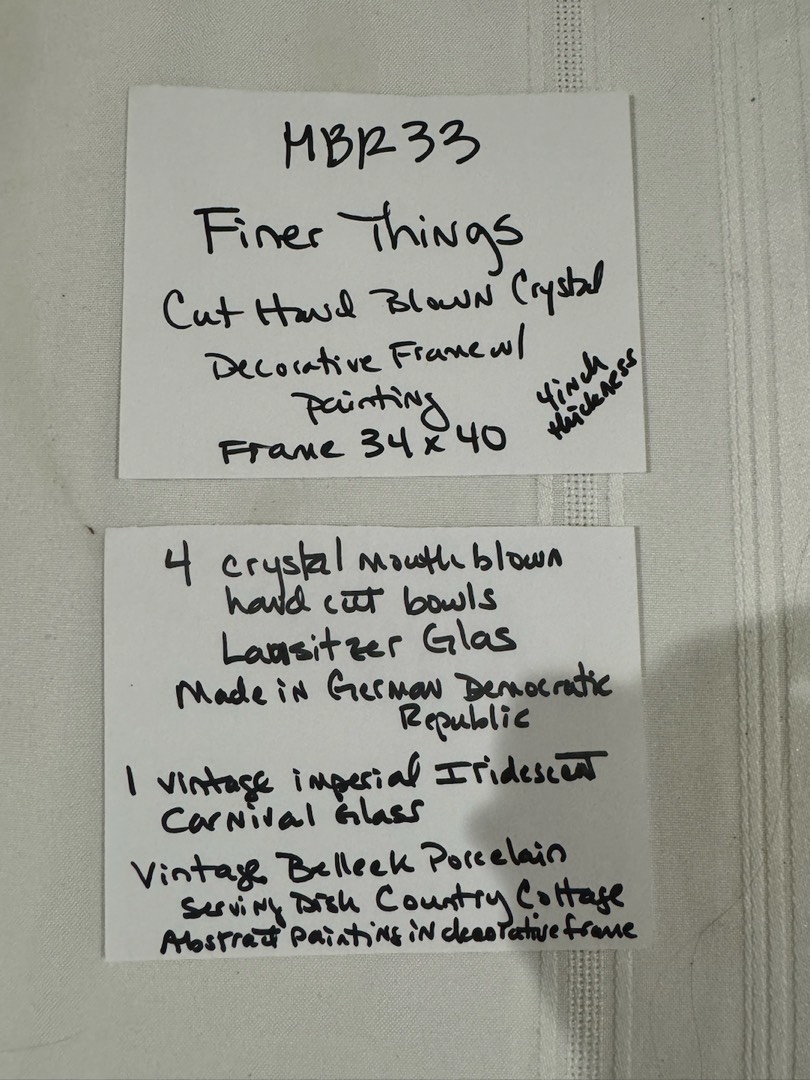 MBR33
Finer Things
Cut Hand Blown Crystal
Decorative Frame w/
painting
Frame 34 x 40
4 inch
thickness
4 crystal mouth blown
hand cut bowls
Lausitzer Glas
Made in German Democratic
Republic
1 vintage imperial Iridescent
Carnival Glass
Vintage Belleek Porcelain
Serving Dish Country Cottage
Abstract painting in decorative frame